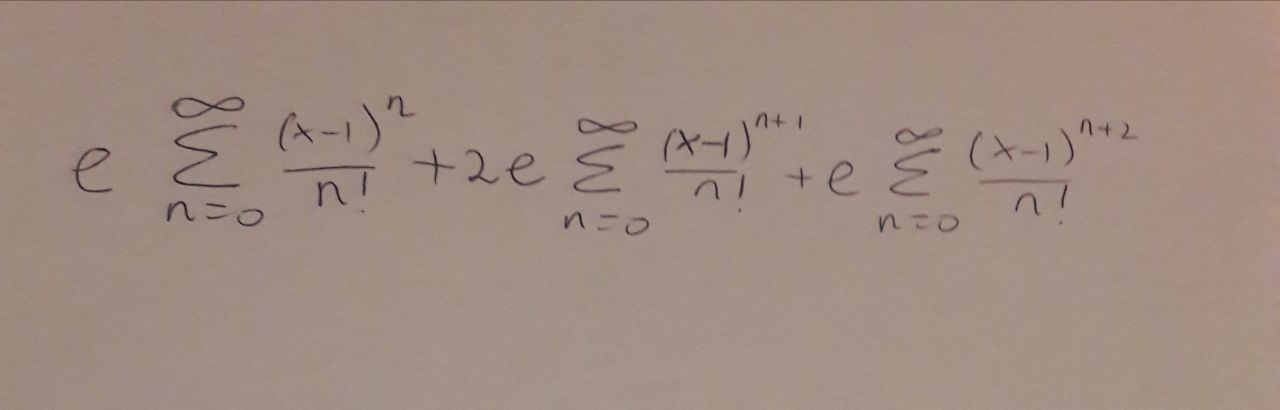 e ∑_{n=0}^{∞} \frac{(x-1)^n}{n!} + 2e ∑_{n=0}^{∞} \frac{(x-1)^{n+1}}{n!} + e ∑_{n=0}^{∞} \frac{(x-1)^{n+2}}{n!}